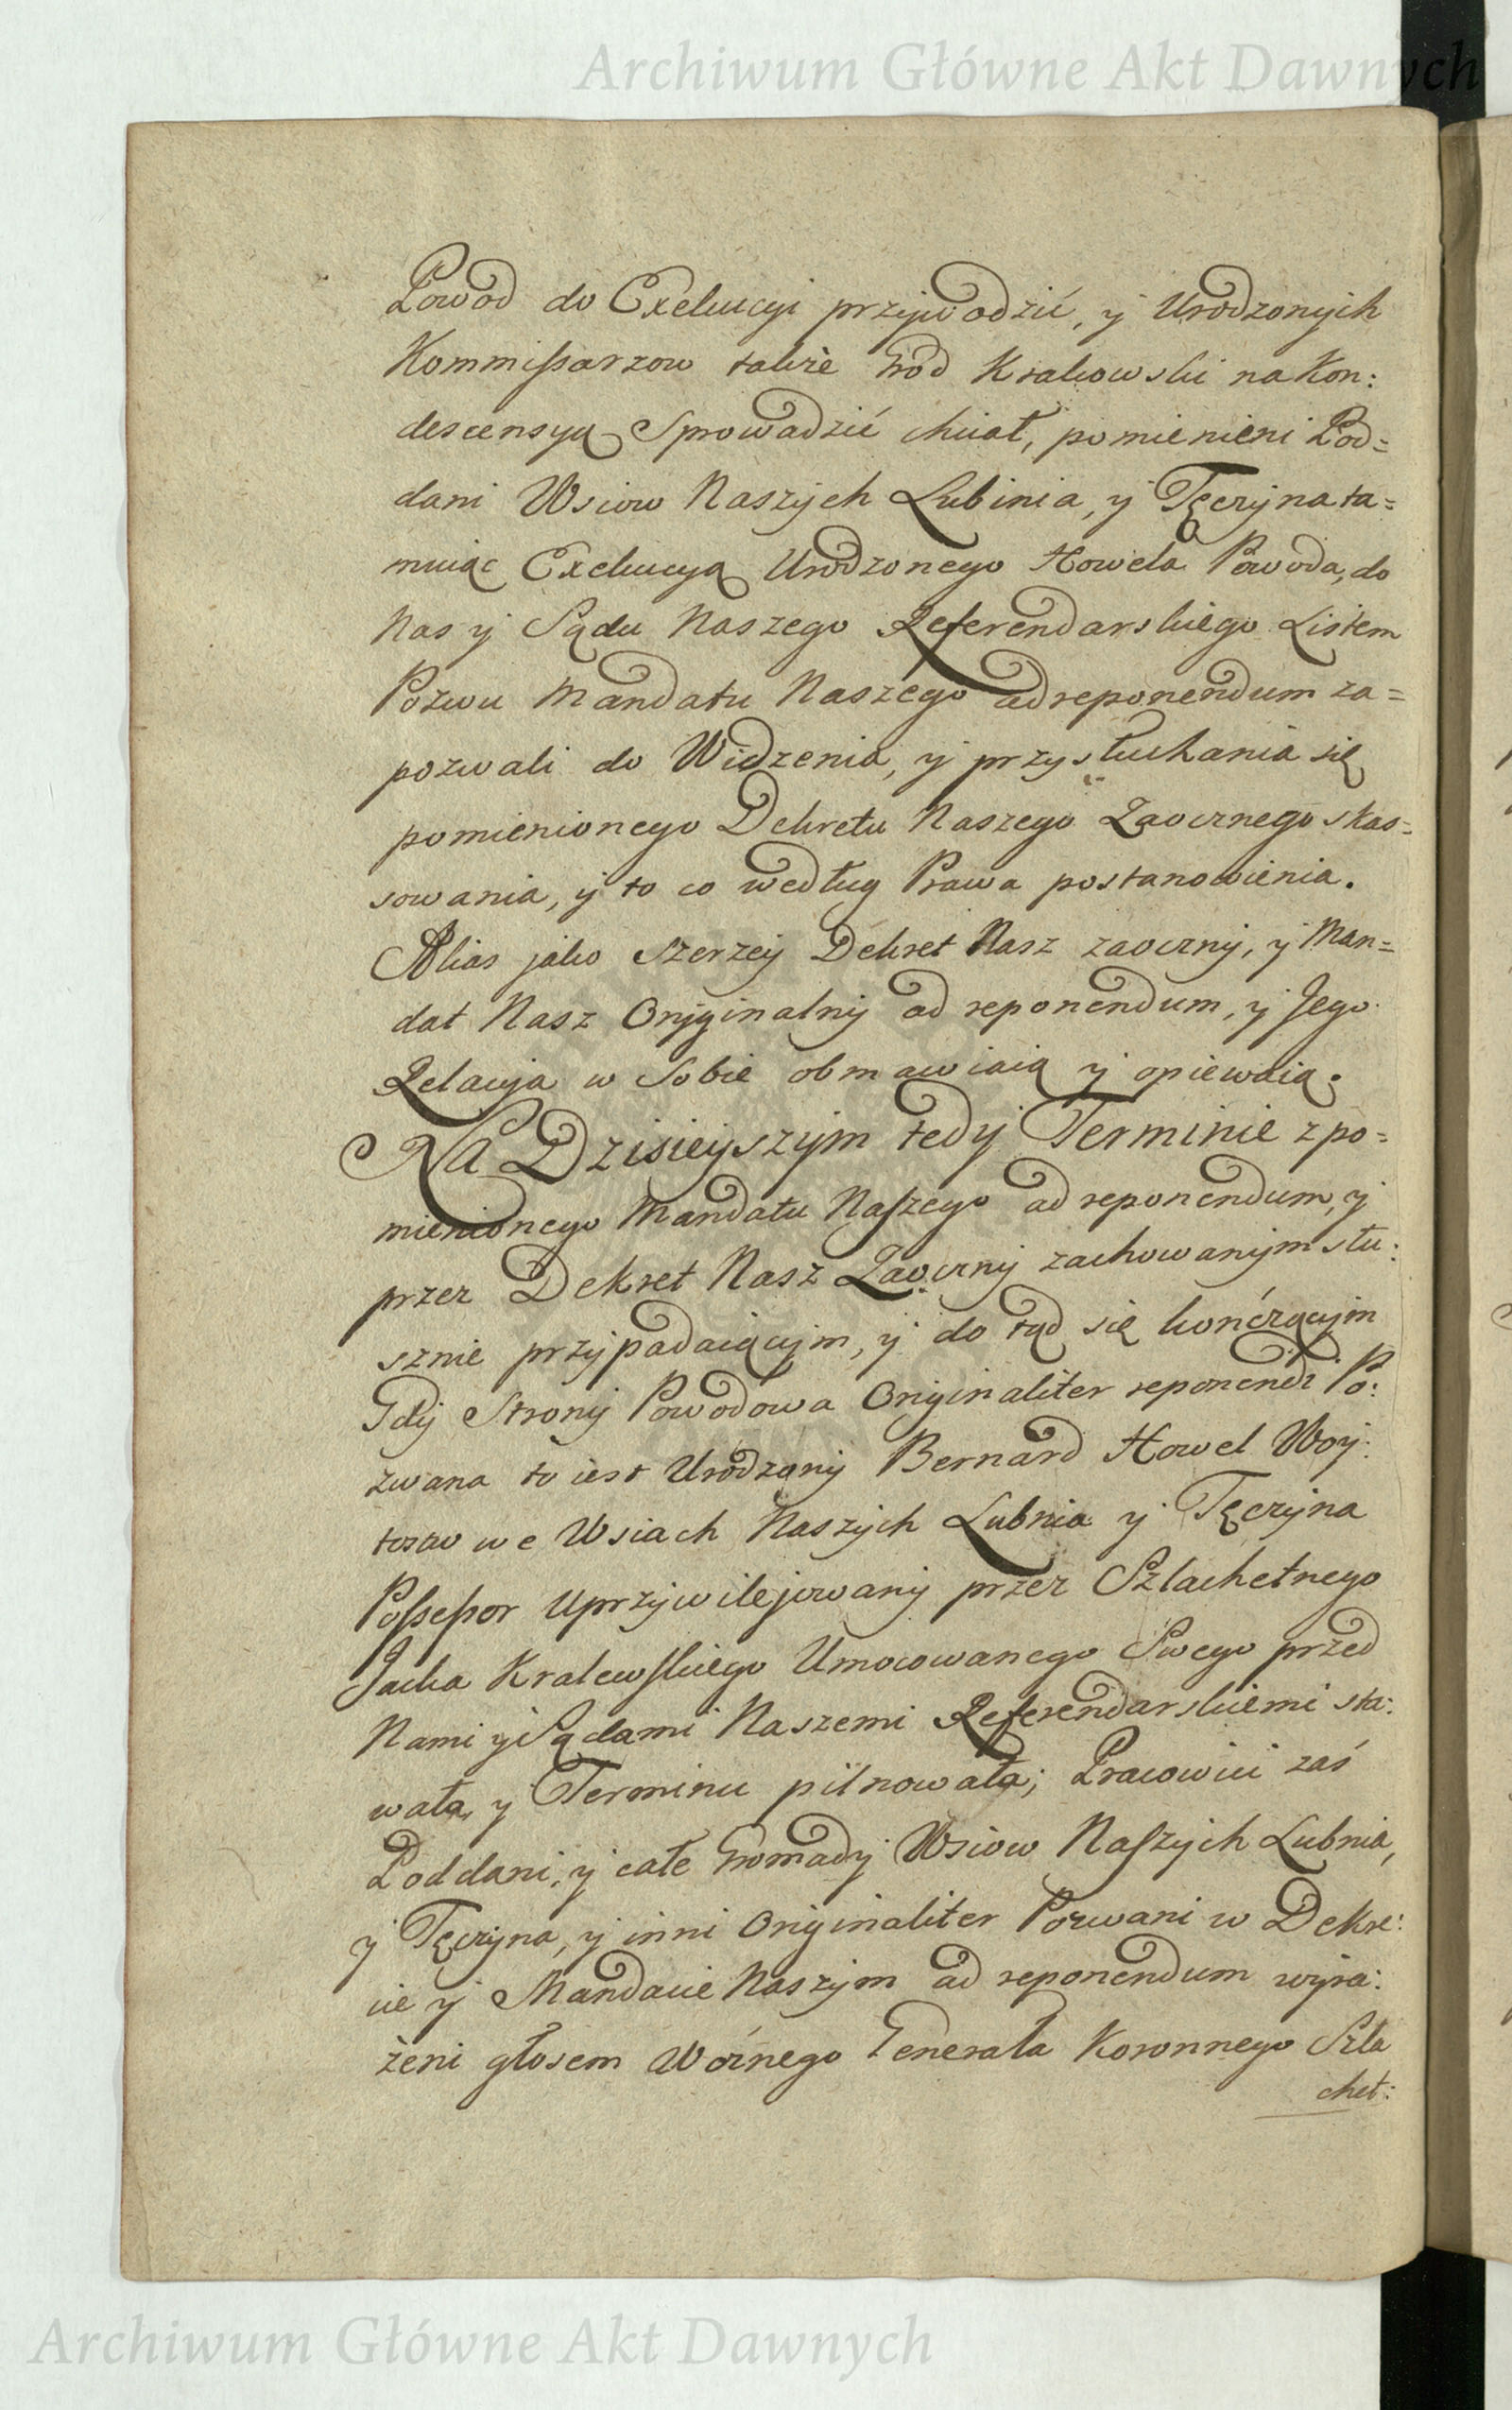 Archiwum Główne Akt Dawnych
Powod do Exekucyi przywodzić, y Urodzonych
Kommissarzow także Grod Krakowski na Kon:
descensyą Sprowadzić chciał, pomienieni Pod=
dani Wsiow Naszych Lubinia, y Tęczyna ta=
muiąc Exekucyą Urodzonego Howela Powoda, do
Nas y Sądu Naszego Referendarskiego Listem
Pozwu Mandatu Naszego ad reponendum za=
pozwali do Widzenia, y przysłuchania się
pomienionego Dekretu Naszego Zaocznego skas=
sowania, y to co według Prawa postanowienia.
Alias jako szerzey Dekret Nasz zaoczny, y Man=
dat Nasz Oryginalny ad reponendum, y Jego
Relacya w Sobie obmawiaią y opiewaią.
Na Dzisieyszym tedy Terminie z po=
mienionego Mandatu Naszego ad reponendum, y
przez Dekret Nasz Zaoczny zachowanym słu:
sznie przypadaiącym, y do tąd się kończącym
Gdy Strony Powodowa Originaliter reponendi Po:
zwana to iest Urodzony Bernard Howel Woy:
tostw we Wsiach Naszych Lubnia y Tęczyna
Possessor Uprzywilejowany przez Szlachetnego
Jacka Kralewskiego Umocowanego Swego przed
Nami y Sądami Naszemi Referendarskiemi sta:
wała, y Terminu pilnowała; Pracowici zaś
Poddani, y całe Gromady Wsiow Naszych Lubnia,
y Tęczyna, y inni Originaliter Pozwani w Dekre:
cie y Mandacie Naszym ad reponendum wyra:
żeni głosem Woźnego Generała Koronnego Szla
chet:
Archiwum Główne Akt Dawnych